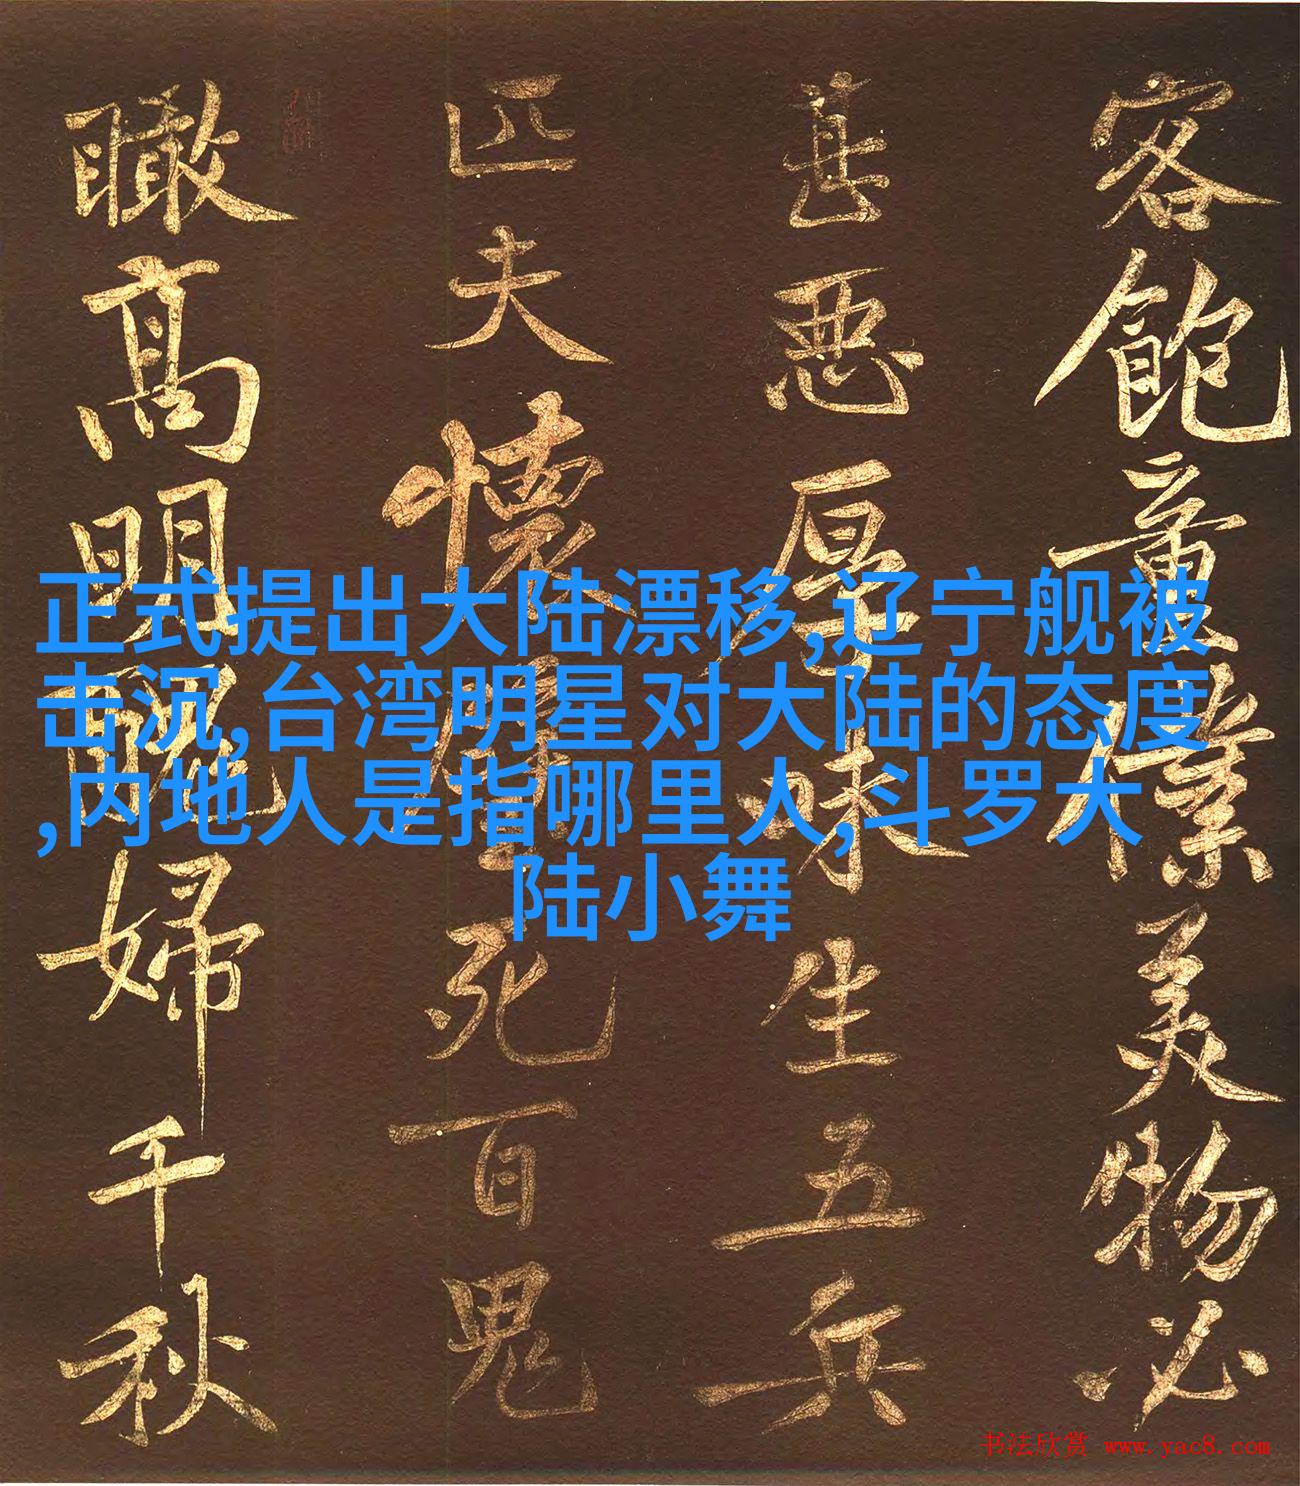 客飽童僕美物必
甚惡厚味生五兵
匹夫懷璧死百鬼
瞰高明醜婦千秋
正式提出大陆漂移,辽宁舰被
击沉,台湾明星对大陆的态度
,内地人是指哪里人,斗罗大
陆小舞
书法欣赏 www.yac8.com